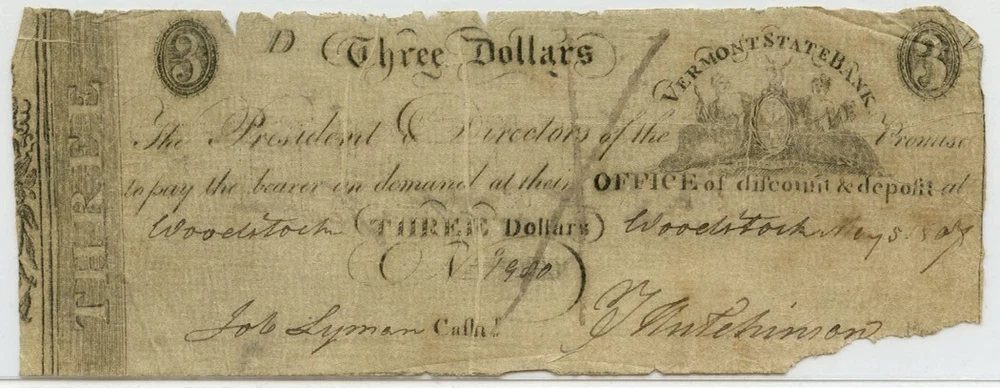 3 D Three Dollars VERMONT STATE BANK 3
THREE
The President & Directors of the Promise
to pay the bearer on demand at their OFFICE of diſcount & depoſit at
Woodstock (THREE Dollars) Woodstock May 5 1807
No 1980
Job Lyman Caſhr T Hutchinson